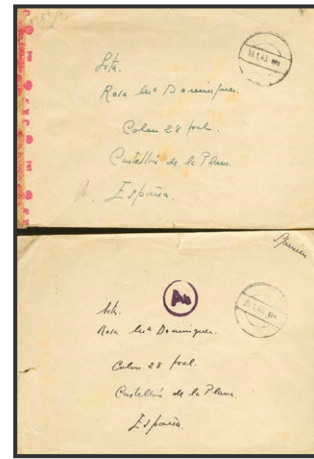 16.1.43
Srta.
Rosa Mª Dominguez.
Colon 28 pral.
Castellón de la Plana.
España.
Spanien
Srta.
Rosa Mª Dominguez.
Colon 28 pral.
Castellón de la Plana.
España.